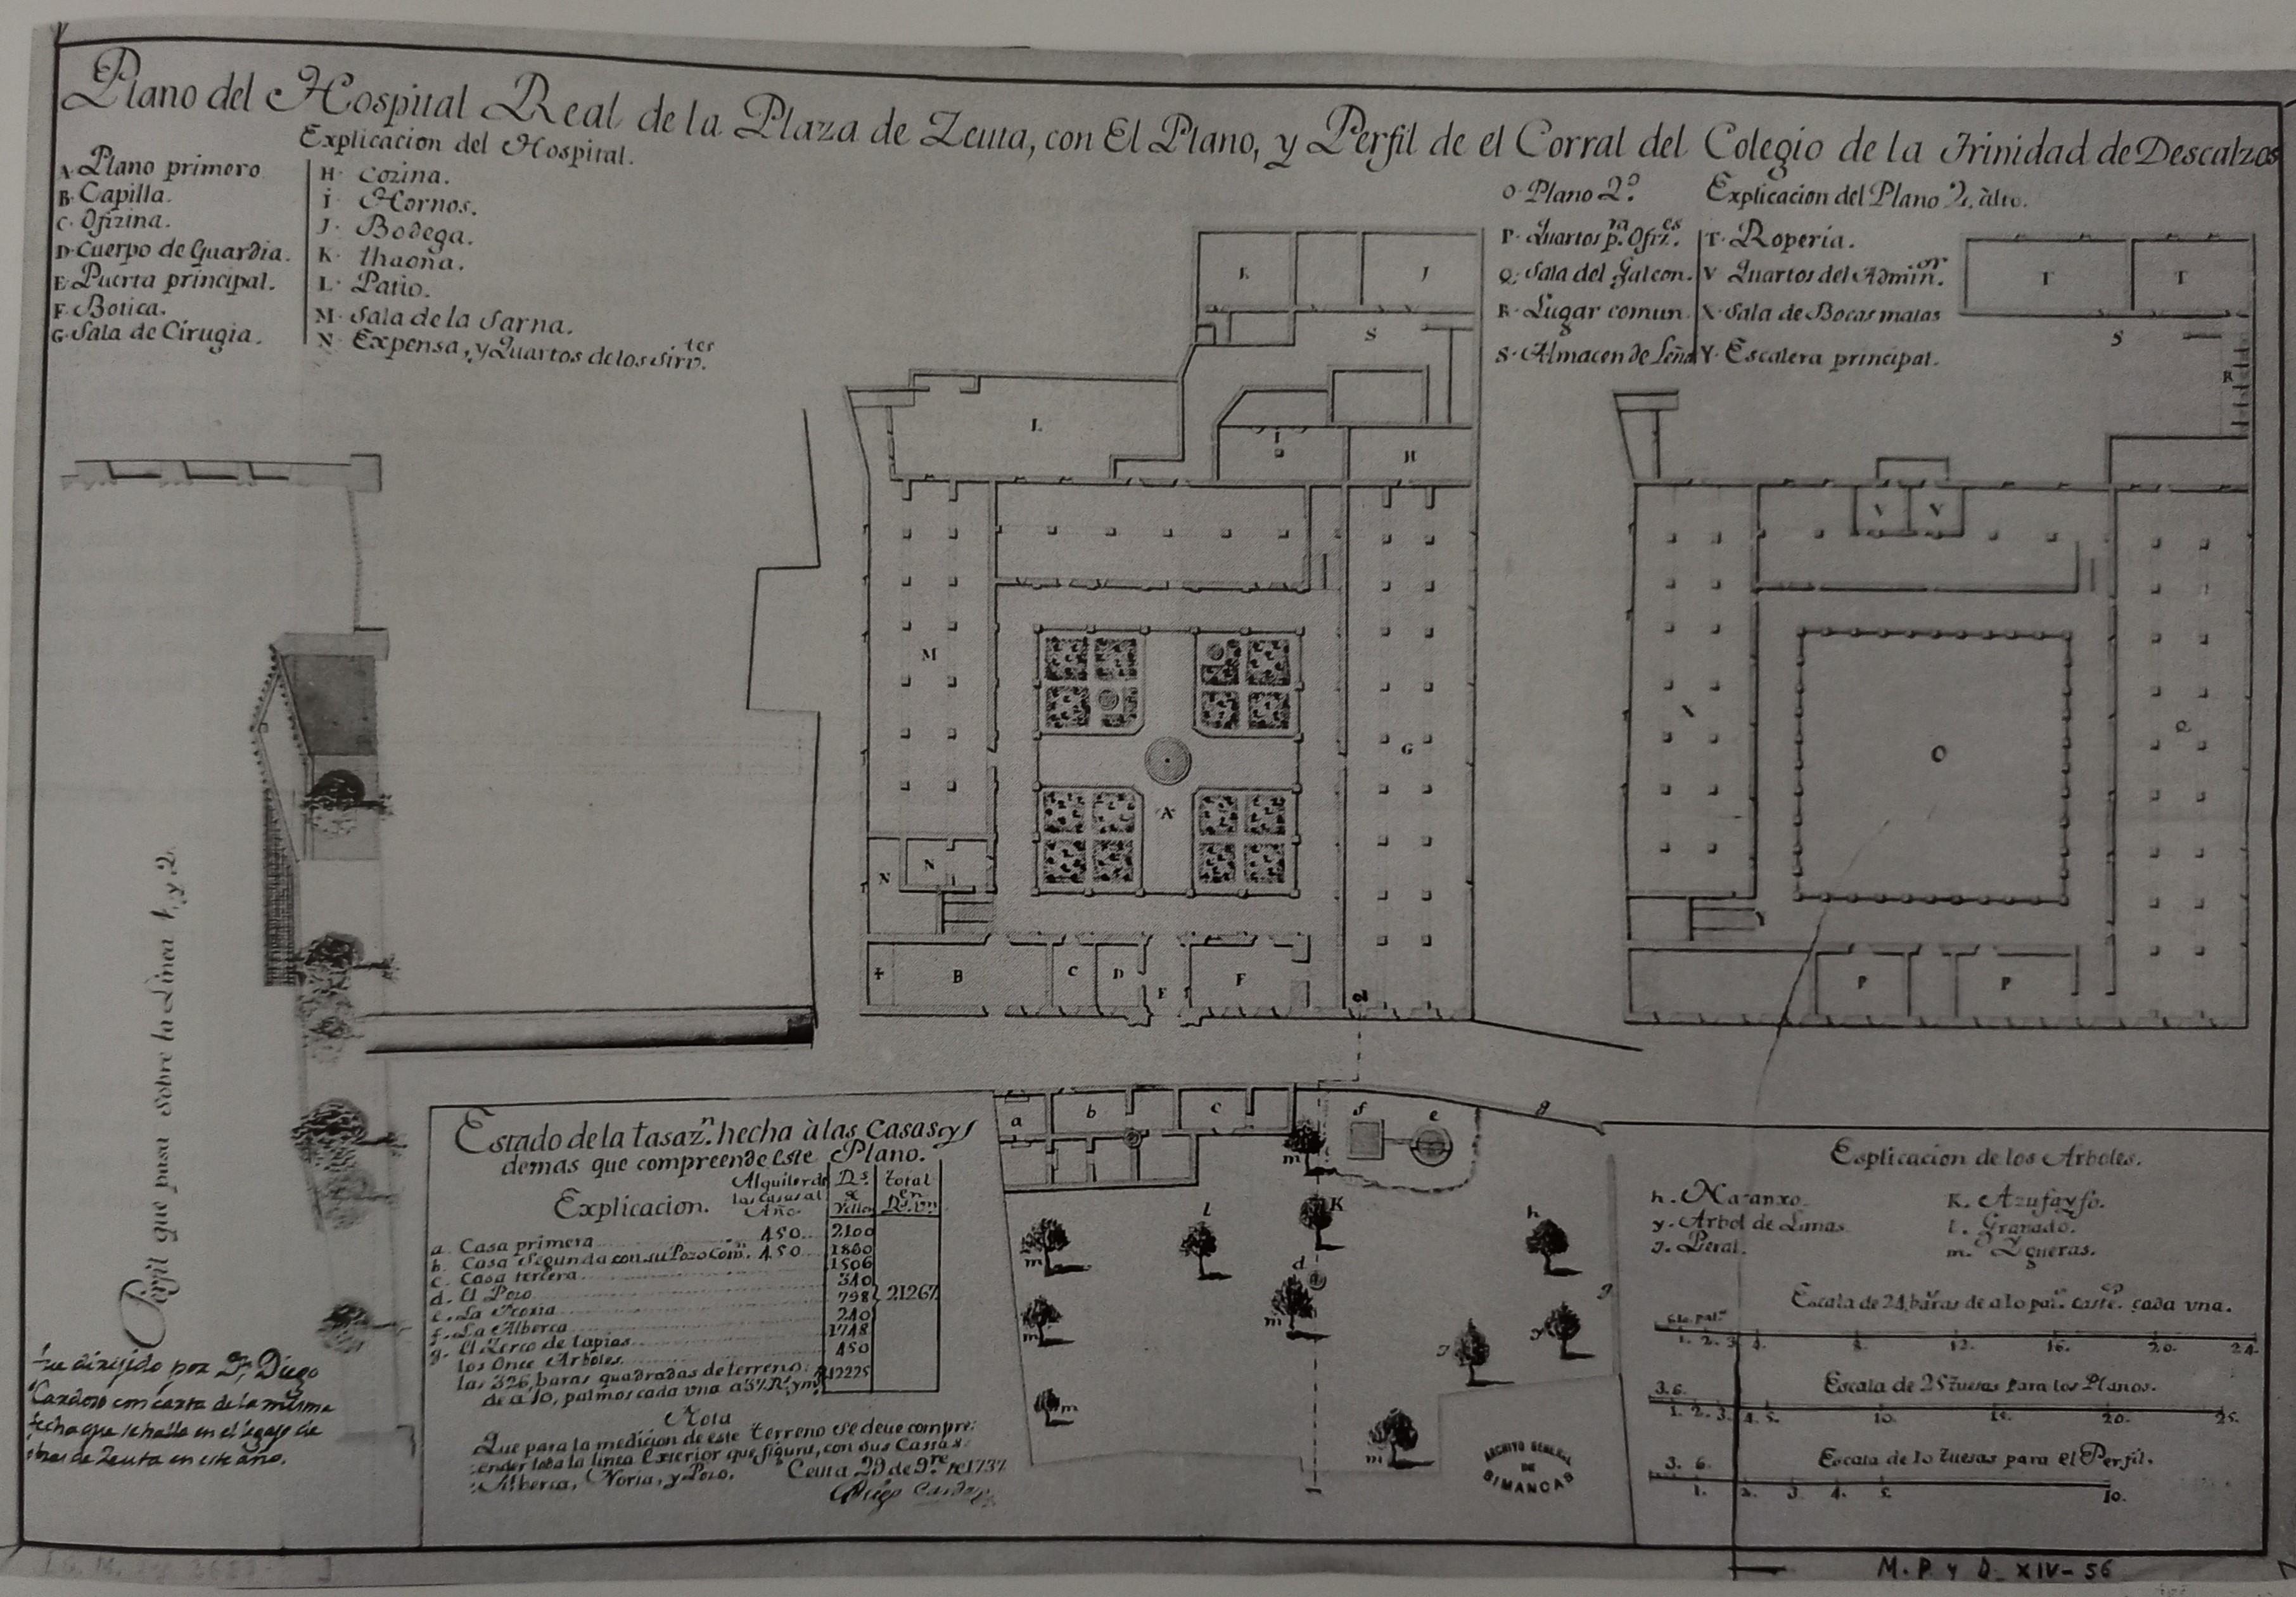 Plano del Hospital Real de la Plaza de Zeuta, con El Plano, y Perfil de el Corral del Colegio de la Trinidad de Descalzos
Explicacion del Hospital.
A. Plano primero
B. Capilla.
C. Ofizina.
D. Cuerpo de Guardia.
E. Puerta principal.
F. Botica.
G. Sala de Cirugia.
H. Cozina.
I. Hornos.
J. Bodega.
K. thaona.
L. Patio.
M. Sala de la Sarna.
N. Expensa, y Quartos de los Sirv.tes
O. Plano 2.º
P. Quartos p.ra Ofiz.es
Q. Sala del Galeon.
R. Lugar comun.
S. Almacen de Leña
Explicacion del Plano 2.º alto.
T. Roperia.
V. Quartos del Admin.or
X. Sala de Bocas malas
Y. Escalera principal.
K
J
S
L
I
H
M
G
A
N
N
B
C
D
E
F
d
T
T
S
R
V
V
O
Q
P
P
Perfil que pasa sobre la Linea 1, y 2.
Fue dirijido por Dn. Diego
Cardoso con carta de la misma
fecha que se halla en el legajo de
obras de Zeuta en este año.
Estado de la tasaz.n hecha à las Casas, y
demas que compreende este Plano.
Explicacion.
Alquiler de las casas al Año.
R.s de Vellon
total en R.s vn
a. Casa primera 450 2100
b. Casa Segunda con su Pozo Com.n 450 1800
c. Casa tercera 1506
d. El Pozo 340
e. La Noria 798
f. La Alberca 240
g. El Zerco de tapias 1748
los Once Arboles. 450
las 326, baras quadradas de terreno
de a 10, palmos cada una a 37 R.s y m.o 12225
21267
Nota
Que para la medicion de este terreno se deve compre:
ender toda la linea Exterior que figura, con sus Casas
Alberca, Noria, y Pozo.
Ceuta 29 de 9.re de 1737
Diego Cardoso
a
b
c
f
e
g
m
K
l
h
m
d
m
m
g
J
y
m
m
ARCHIVO GENERAL
DE
SIMANCAS
Esplicacion de los Arboles.
h. Naranxo.
y. Arbol de Limas
J. Peral.
K. Azufayfo.
l. Granado.
m. Ygueras.
Escala de 24, baras de a 10 pal.s caste.s cada vna.
1. 2. 3. 4. 8. 12. 16. 20. 24.
Escala de 25 tuesas para los Planos.
3. 6.
1. 2. 3. 4. 5. 10. 15. 20. 25.
Escala de 10 tuesas para el Perfil.
3. 6.
1. 2. 3. 4. 5. 10.
M. P. y D. XIV-56